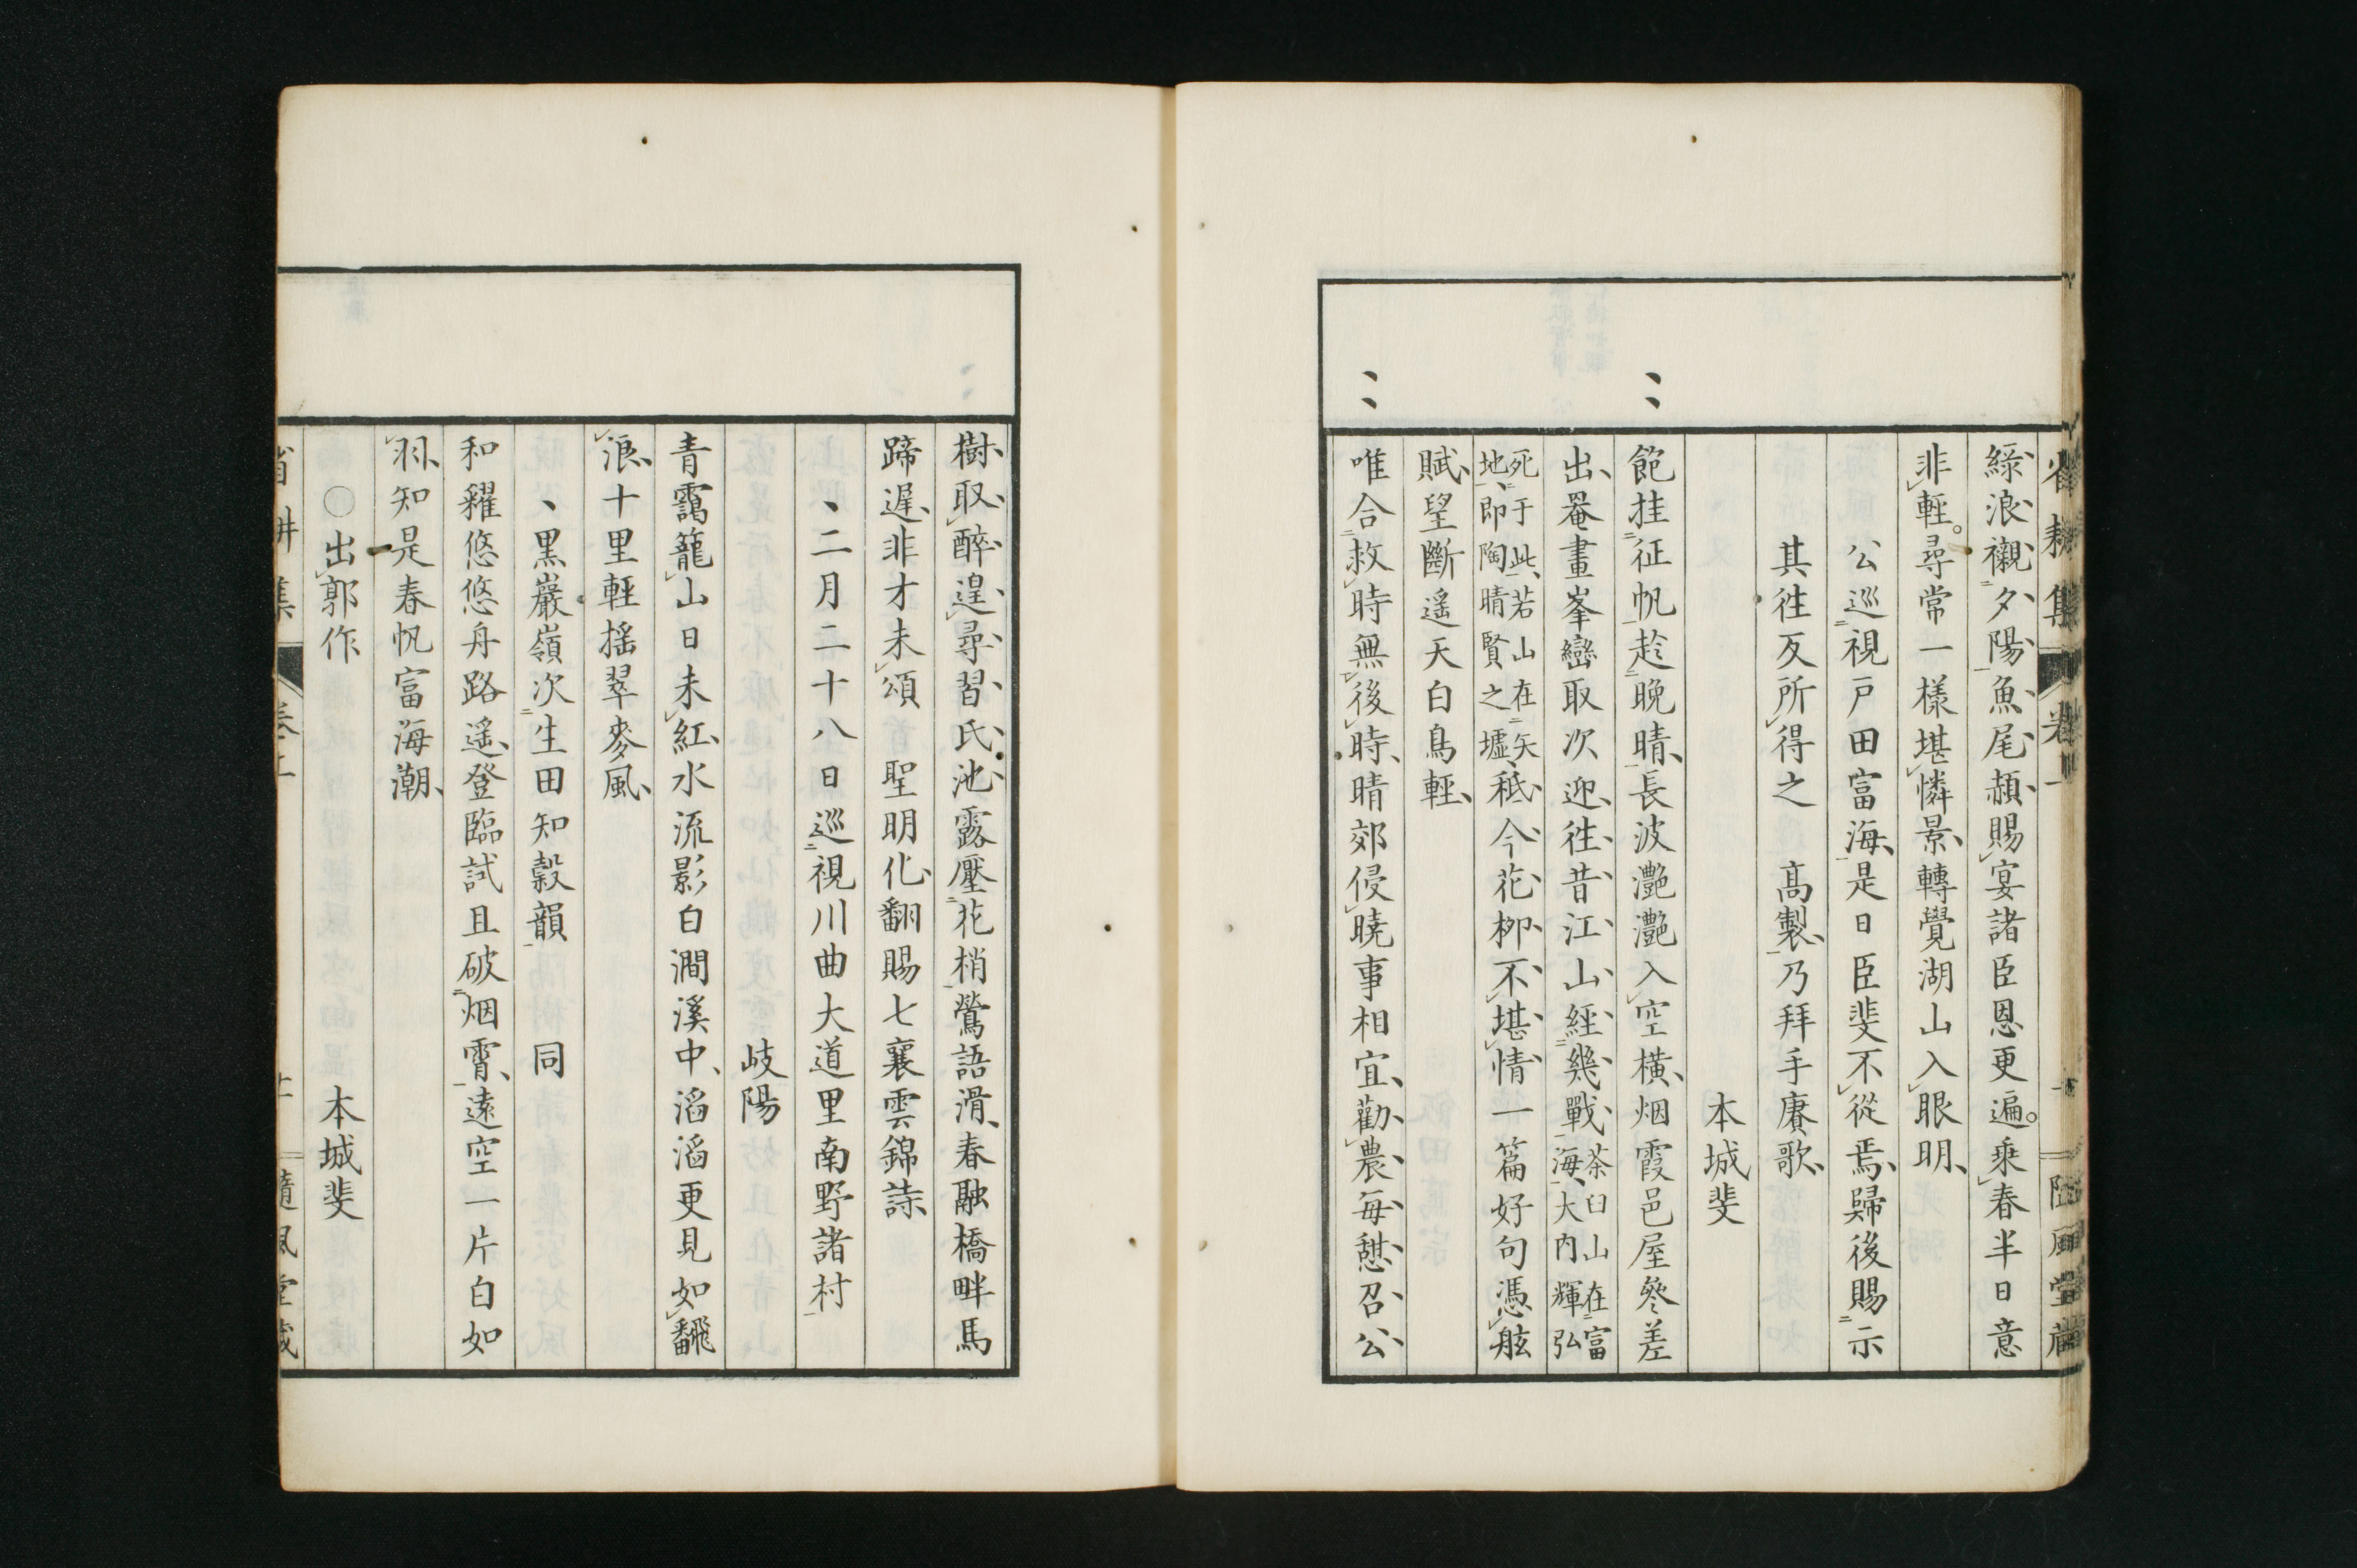 省耕集 卷一 隨風堂藏
綠浪襯夕陽魚尾赬賜宴諸臣恩更遍乘春半日意
非輕尋常一樣堪憐景轉覺湖山入眼明
公巡視戸田富海是日臣斐不從焉歸後賜示
其徃反所得之 高製乃拜手賡歌
本城斐
飽挂征帆趁晩晴長波灔灔入空橫烟霞邑屋參差
出罨畫峯巒取次迎徃昔江山經幾戰茶臼山在富海大内輝弘
死于此若山在矢地即陶晴賢之墟秪今花柳不堪情一篇好句憑舷
賦望斷遥天白鳥輕
唯合救時無後時晴郊侵曉事相宜勸農每憇召公
樹取醉遑尋習氏池露壓花梢鶯語滑春融橋畔馬
蹄遲非才未頌 聖明化翻賜七襄雲錦詩
二月二十八日巡視川曲大道里南野諸村
岐陽
青靄籠山日未紅水流影白澗溪中滔滔更見如飜
浪十里輕揺翠麥風
黒巖嶺次生田知穀韻 同
和糴悠悠舟路遥登臨試且破烟霄遠空一片白如
羽知是春帆富海潮
○出郭作 本城斐
省耕集 卷一 隨風堂藏